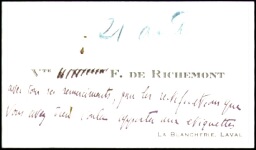 21 août
Vte F. DE RICHEMONT
avec tous ses remerciements, pour les rectifications que
vous avez bien voulu apporter aux étiquettes
LA BLANCHERIE, LAVAL